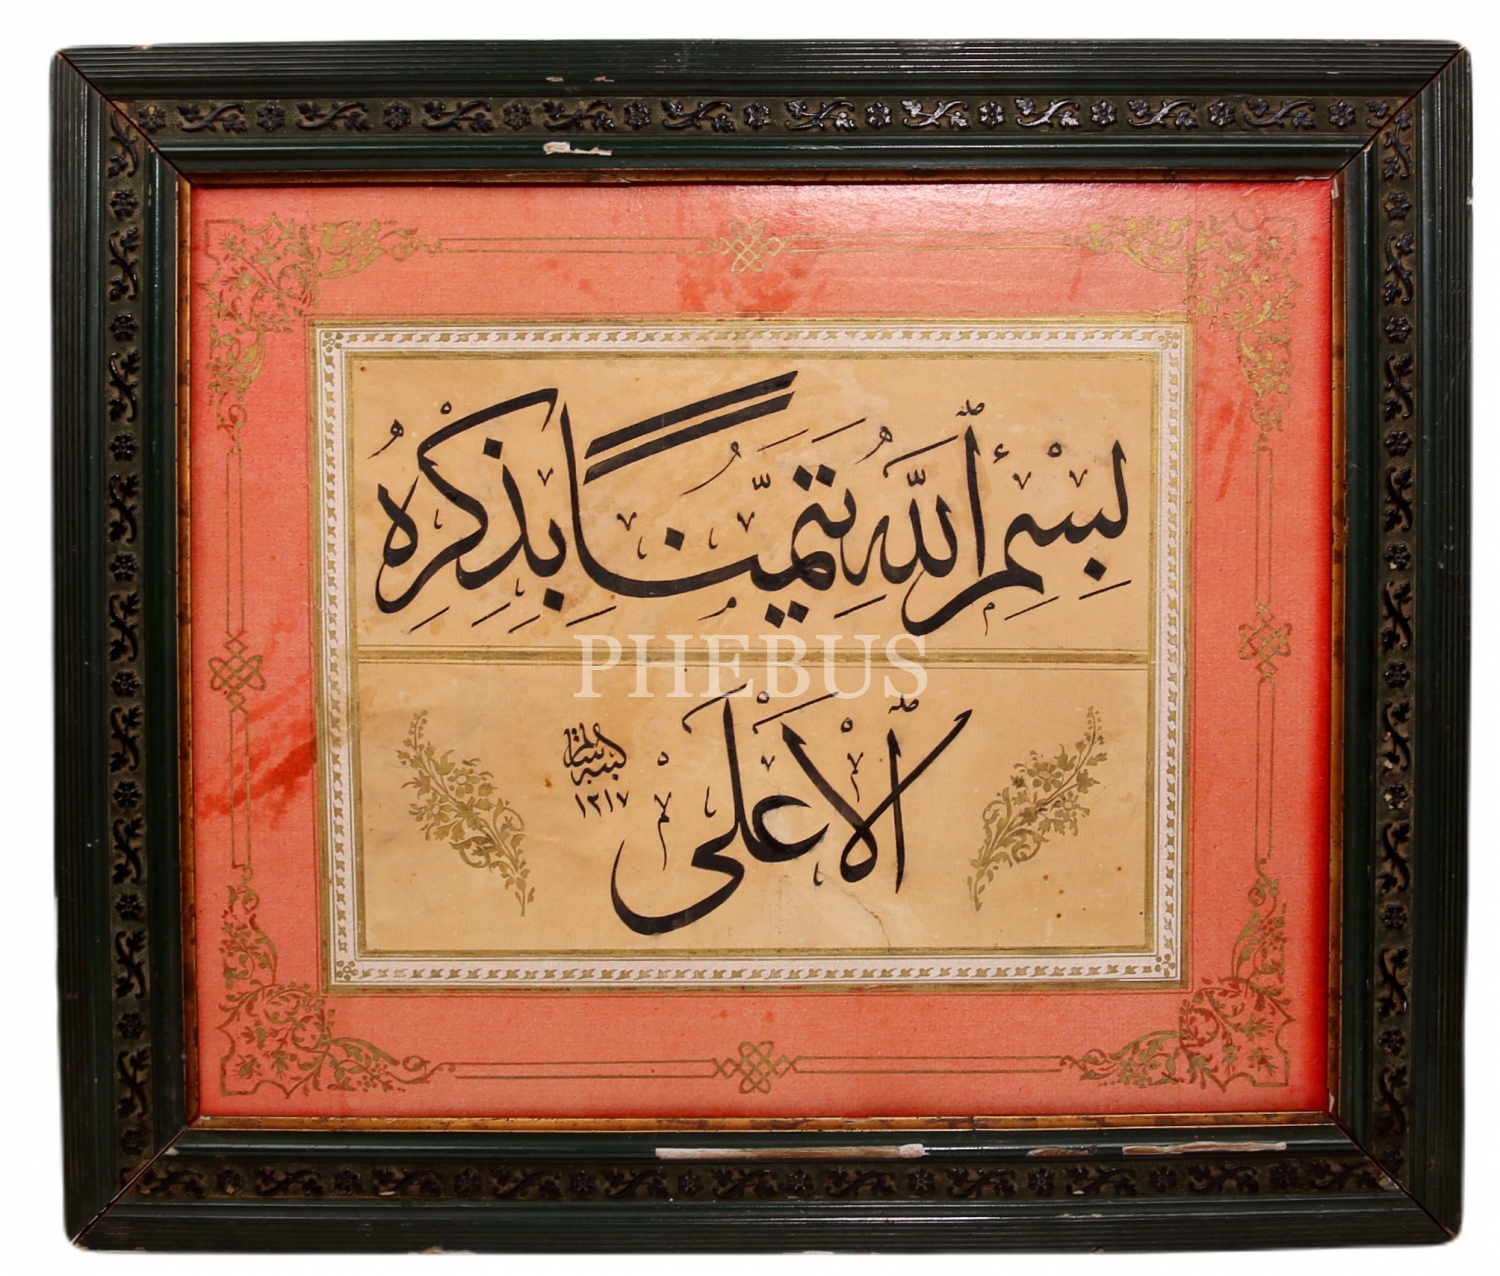 بِسْمِ اللّٰهِ تَيَمُّنًا بِذِكْرِهِ
PHEBUS
الْأَعْلَى
كتبه
١٢١٧